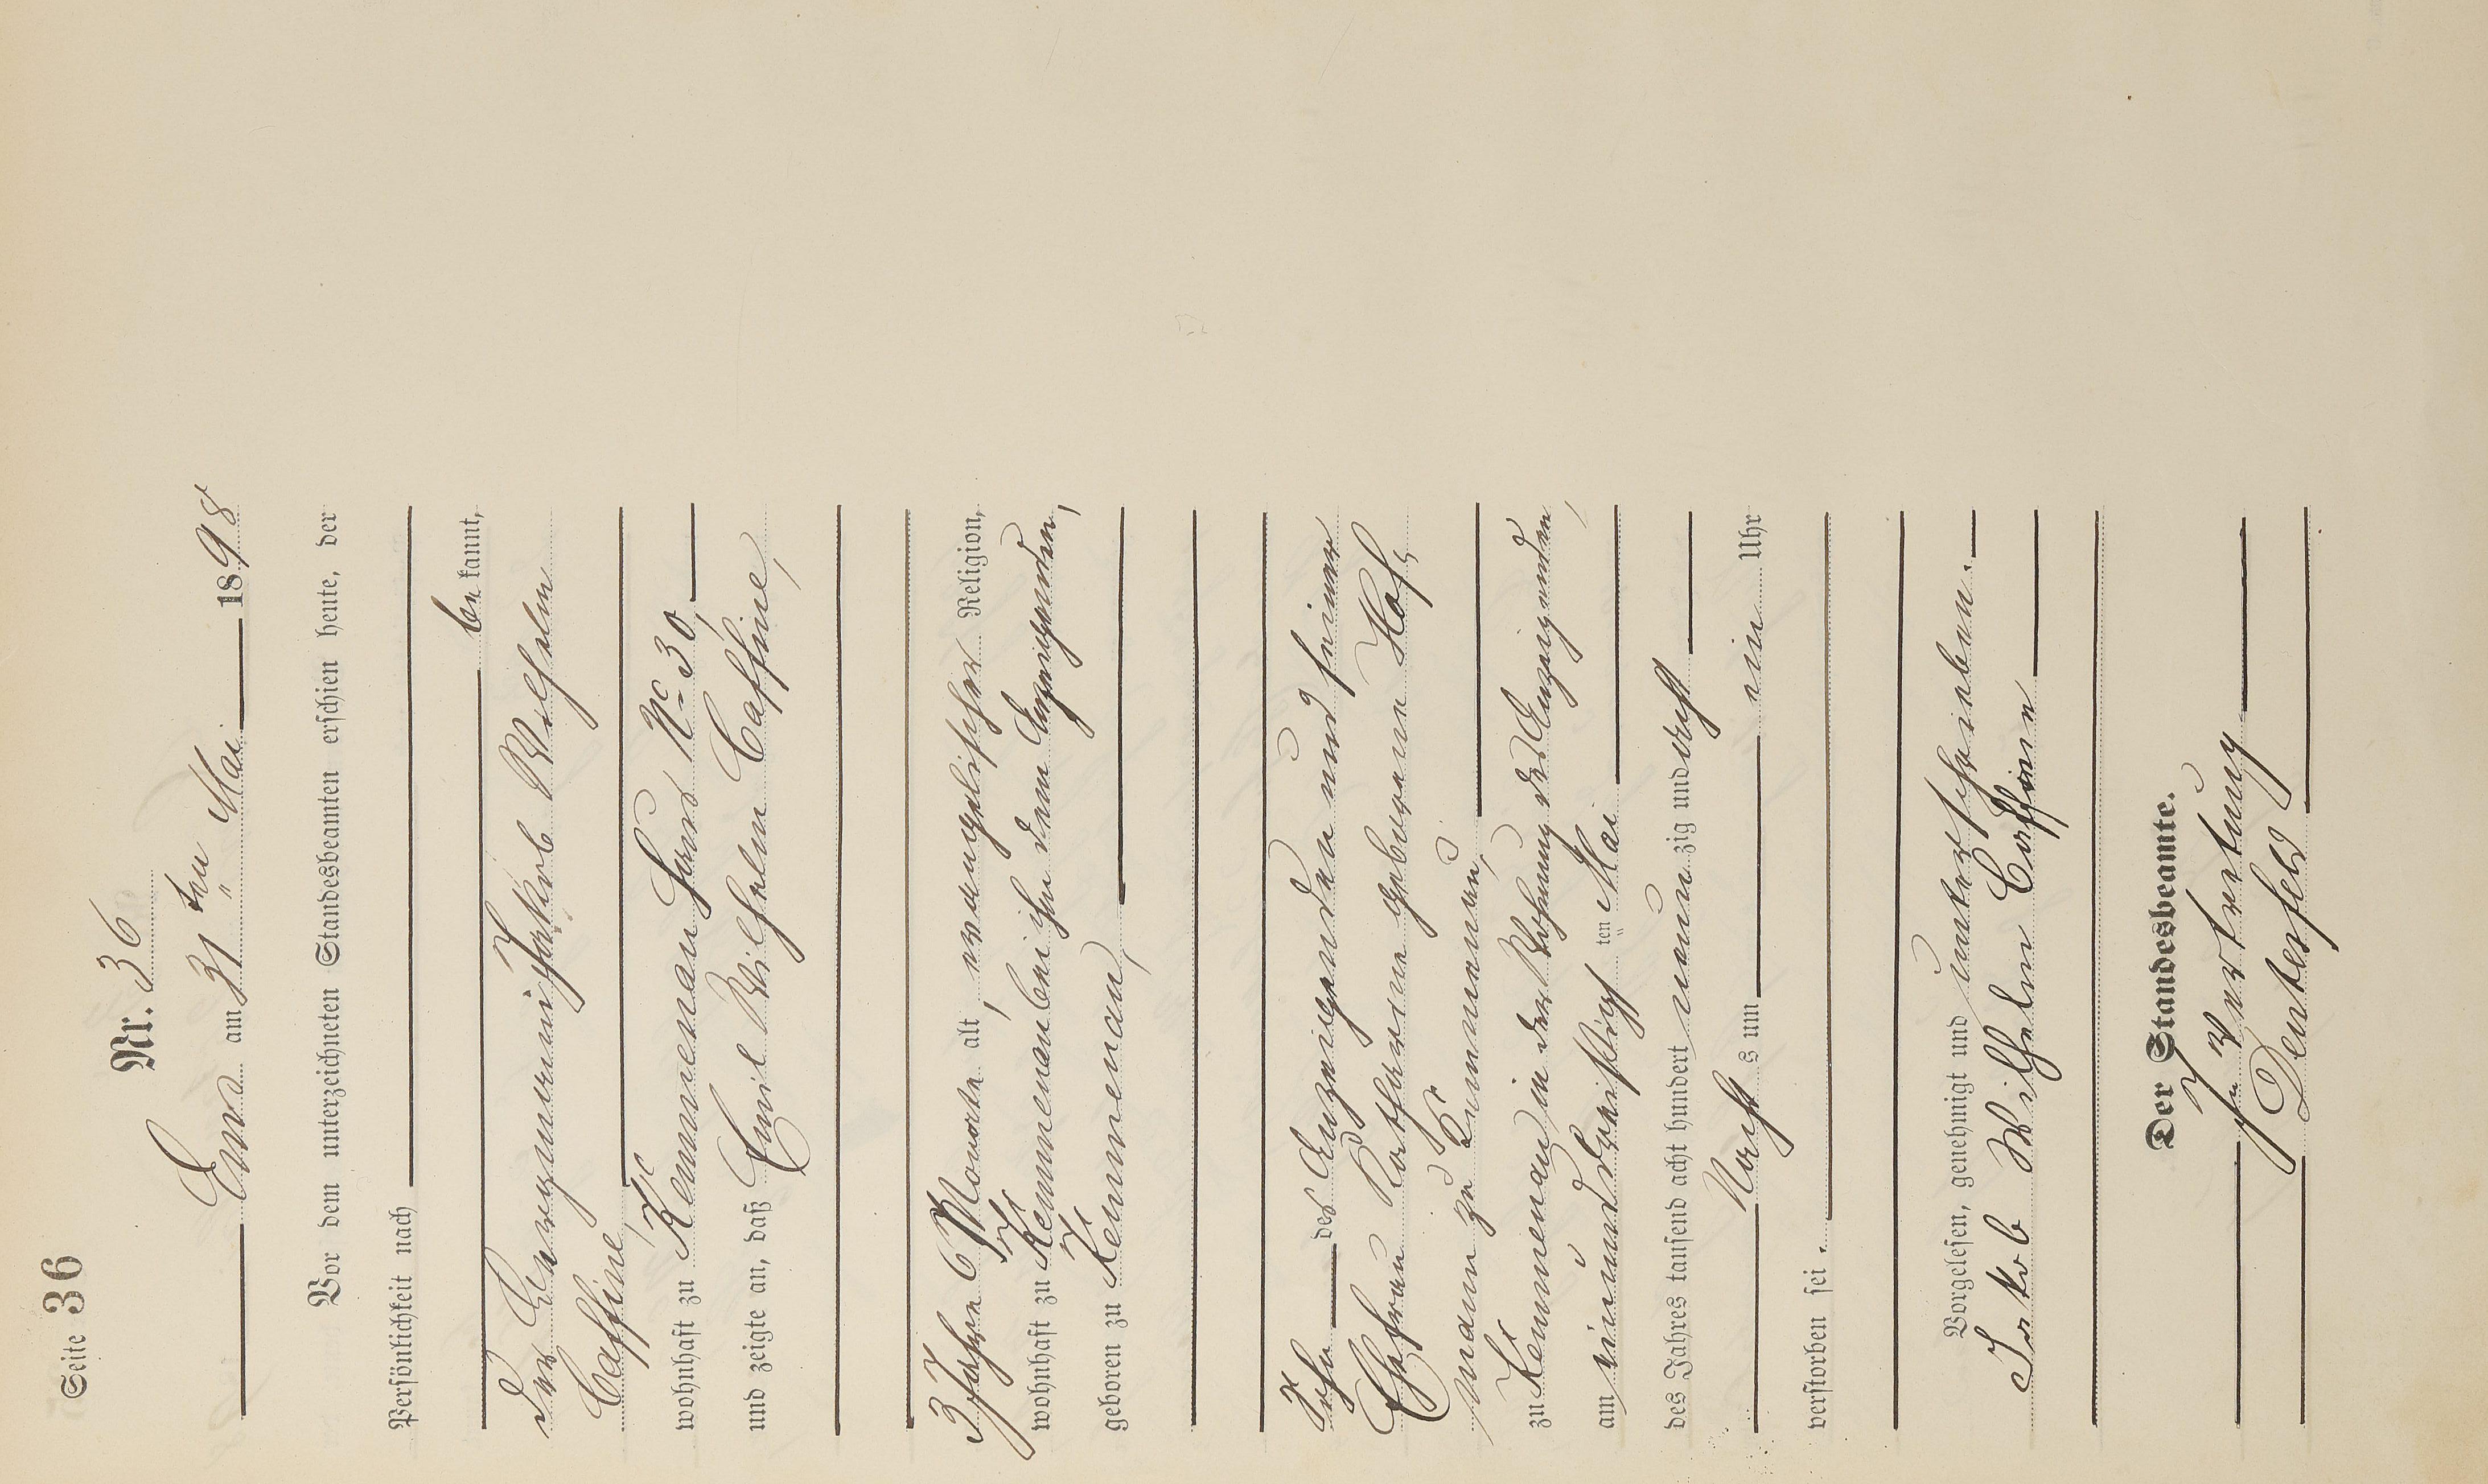 Seite 36
Nr. 36
Ems am 31ten Mai 1898
Vor dem unterzeichneten Standesbeamten erschien heute, der
Persönlichkeit nach
bekannt,
der Bergmann Jakob Wilhelm
Caffine,
wohnhaft zu Kemmenau Haus No 30,
und zeigte an, daß Emil Wilhelm Caffine,
3 Jahre 6 Monate alt, evangelischer Religion,
wohnhaft zu Kemmenau bei ihm dem Anzeigenden,
geboren zu Kemmenau,
Sohn des Anzeigenden und seiner
Ehefrau Katharine geborene Hof,
mann zu Kemmenau,
zu Kemmenau in der Wohnung des Anzeigenden,
am einunddreißigsten Mai
des Jahres tausend acht hundert neunzig und acht
Nachts um ein Uhr
verstorben sei.
Vorgelesen, genehmigt und unterschrieben.
Jakob Wilhelm Caffine
Der Standesbeamte.
In Vertretung